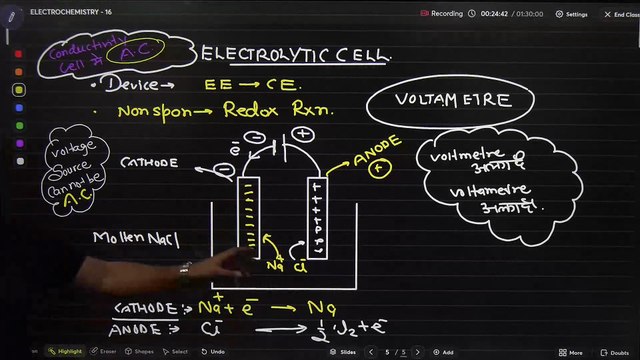 ELECTROCHEMISTRY - 16
Recording
00:24:42 / 01:30:00
Settings
End Class
Conductivity
Cell में A.C
ELECTROLYTIC CELL
• Device → EE → CE.
• Non spon → Redox Rxn.
VOLTAMETRE
Voltage
Source
Cannot be
A.C
CATHODE
e⁻
−
+
ANODE
+
−
voltmetre
अलग है
voltametre
अलग है.
Molten NaCl
Na⁺ Cl⁻
CATHODE :→ Na⁺ + e⁻ → Na
ANODE: Cl⁻ → 1/2 Cl₂ + e⁻
Highlight
Erasers
Shapes
Undo
Slides
5 / 5
Leaderboard
Chat
More